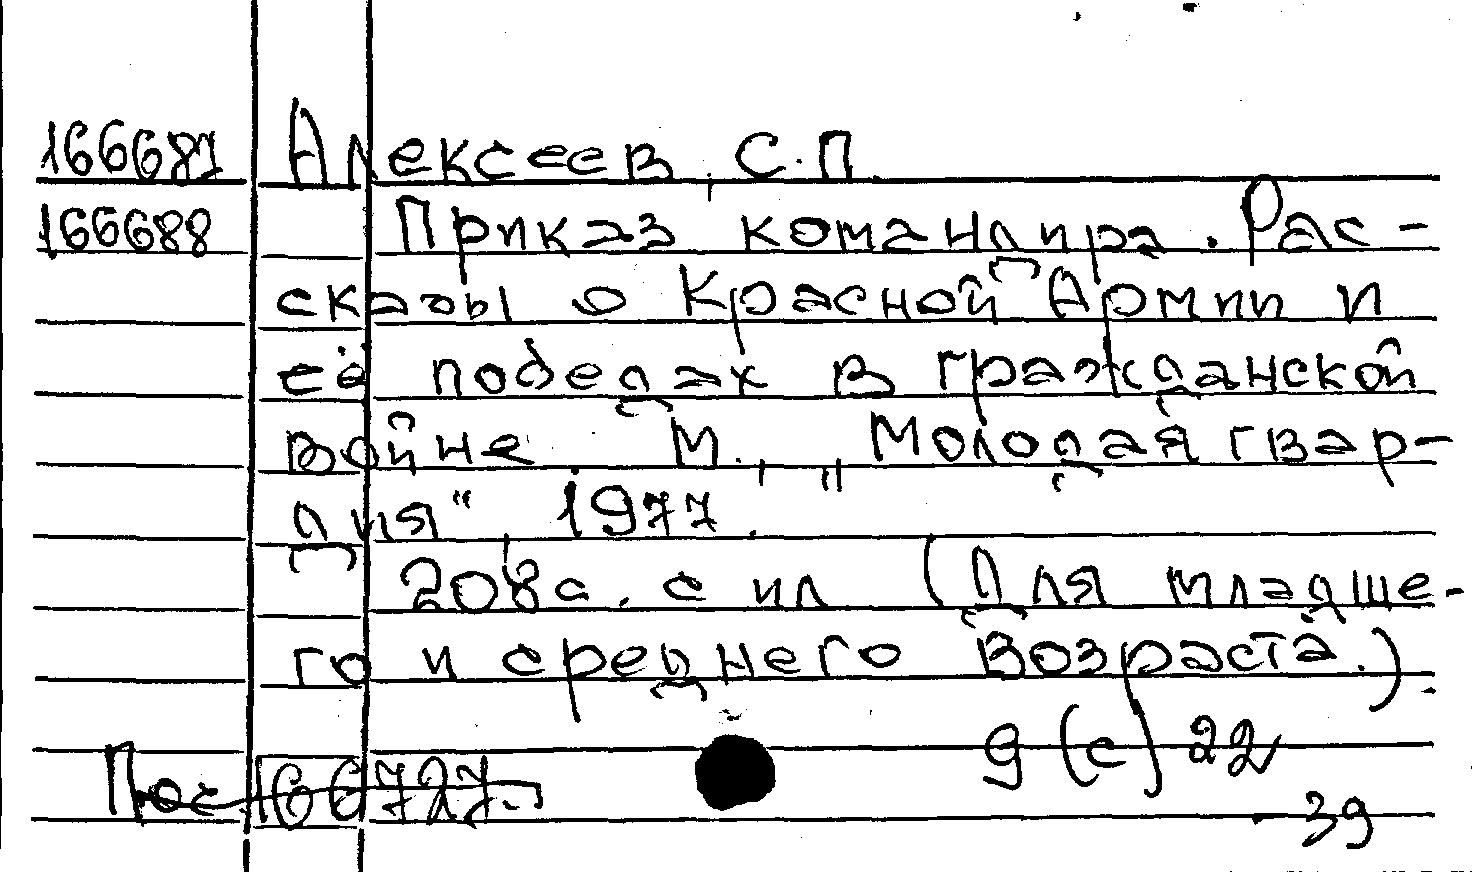 166687 Алексеев, С.П.
166688 Приказ командира. Рас-
сказы о Красной Армии и
её победах в гражданской
войне. М., „Молодая гвар-
дия“, 1977.
208с. с ил (Для младше-
го и среднего возраста.).
9(с)22
Пос 166727. 39